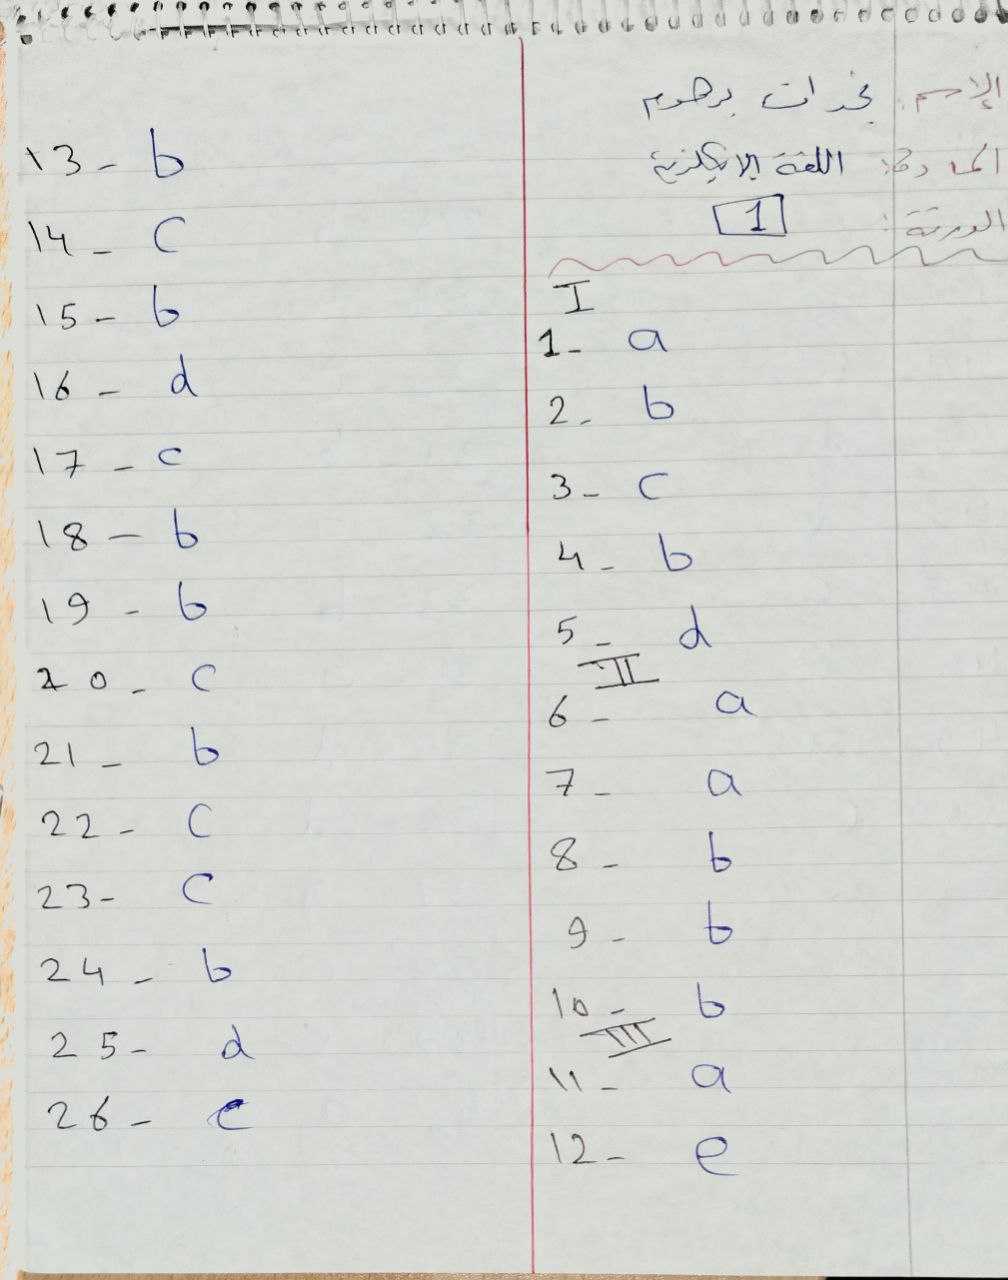 الإسم: نجدات برهوم
المادة: اللغة الإنكليزية
الورقة: 1
I
1- a
2- b
3- c
4- b
5- d
II
6- a
7- a
8- b
9- b
10- b
III
11- a
12- e
13- b
14- c
15- b
16- d
17- c
18- b
19- b
20- c
21- b
22- c
23- c
24- b
25- d
26- c